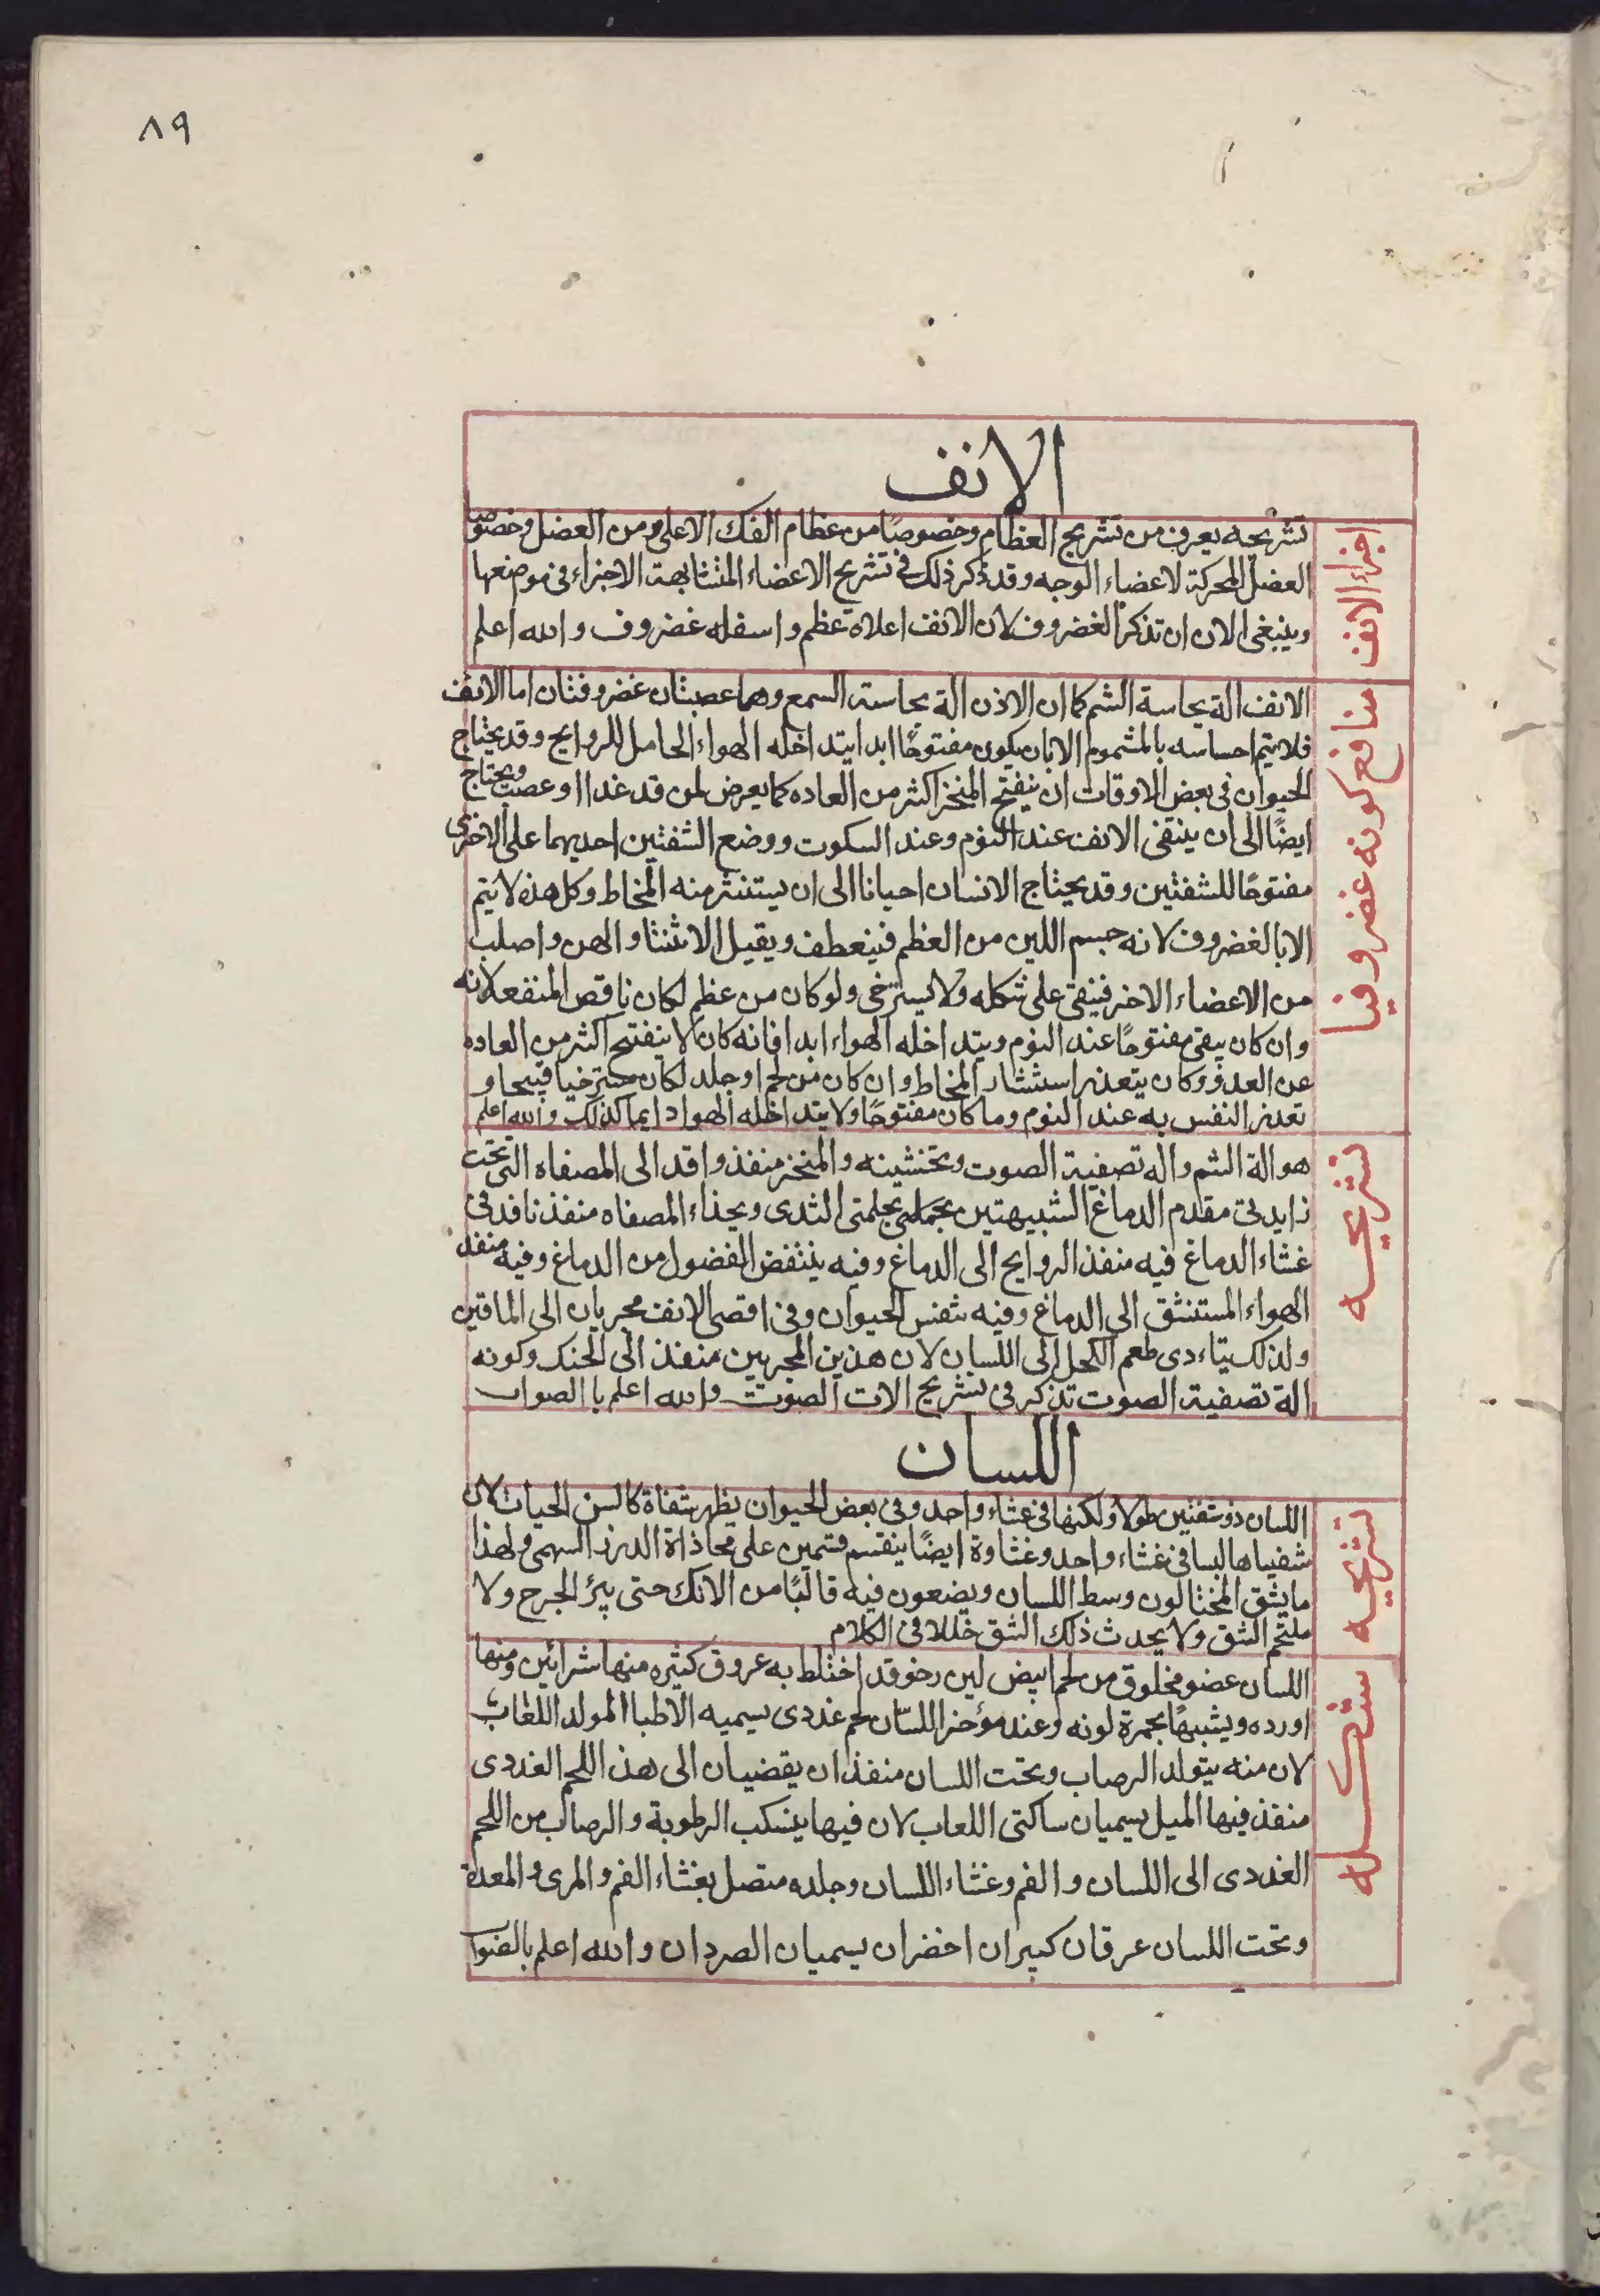 ٨٩
الانف
اجزاء الانف
تشريحه يعرف من تشريح العظام وخصوصًا من عظام الفك الاعلى ومن العضل وخصوصا
العضل المحركة لاعضاء الوجه وقد ذكر ذلك في تشريح الاعضاء المتشابهة الاجزاء في موضعها
وينبغي الان ان تذكر الغضروف لان الانف اعلاه عظم واسفله غضروف والله اعلم
منافع كونه غضروفيا
الانف الة بحاسة الشم كما ان الاذن الة بحاسة السمع وهما عصبتان غضروفتان اما الانف
فلا يتم احساسه بالمشموم الا بان يكون مفتوحًا ابدا يتداخله الهواء الحامل للروايح وقد يحتاج
الحيوان في بعض الاوقات ان ينفتح المنخز اكثر من العاده كما يعرض لمن قد عدا او عصب ويحتاج
ايضًا الى ان ينتقى الانف عند النوم وعند السكوت ووضع الشفتين احديهما على الاخرى
مفتوحًا للشفتين وقد يحتاج الانسان احيانا الى ان يستنثر منه المخاط وكل هذه لا يتم
الا بالغضروف لانه جسم اللين من العظم فينعطف ويقيل الانثناء والهن واصلب
من الاعضاء الاخر فينقى على شكله ولا يسترخي ولو كان من عظم لكان ناقص المنفعه لانه
وان كان يبقى مفتوحًا عند النوم ويتداخله الهواء ابدا فانه كان لا ينفتح اكثر من العاده
عن العدو وكان يتعذر استنثار المخاط وان كان من لحم او جلد لكان مسترخيا قبيحا و
تعذر النفس به عند النوم وما كان مفتوحًا ولا يتداخله الهوا دايما كذلك والله اعلم
تشريحه
هو الة الشم واله تصفية الصوت وتخشينه والمنخز منفذ واقد الى المصفاه التي تحت
زايدتي مقدم الدماغ الشبيهتين بحملتي الثدى وبحذاء المصفاه منفذ نافد في
غشاء الدماغ فيه منفذ الروايح الى الدماغ وفيه ينتفض الفضول من الدماغ وفيه منفذ
الهواء المستنشق الى الدماغ وفيه تنفس الحيوان وفي اقصى الانف مجريان الى الماقين
ولذلك يتاءدى طعم الكحل الى اللسان لان هذين المجريين منفذ الى الحنك وكونه
الة تصفية الصوت تذكر في تشريح الات الصوت والله اعلم باالصواب
اللسان
تشريحه
اللسان ذو شفتين طولا ولكنها في غشاء واحد وفي بعض الحيوان يظهر شفاة كالسن الحيات لان
شفيباها لبسا في غشاء واحد وغشاوة ايضًا ينقسم قسمين على محاذاة الدرز السهمي ولهذا
ما يشق المختالون وسط اللسان ويضعون فيه قالبًا من الانك حتى يبرؤ الجرح ولا
ملتحم الشق ولا يحدث ذلك الشق خللا في الكلام
شكله
اللسان عضو مخلوق من لحم ابيض لين رخو قد اختلط به عروق كثيره منها شرائين ومنها
اورده ويشبهها بحمرة لونه وعند مؤخر اللسان لحم غددى يسميه الاطبا المولد اللعاب
لان منه يتولد الرصاب وتحت اللسان منفذان يقضيان الى هذا اللحم الغددى
منفذ فيها الميل يسميان ساكتى اللعاب لان فيها ينسكب الرطوبة والرصاب من اللحم
الغددى الى اللسان والفم وغشاء اللسان وجلده متصل بغشاء الفم والمرى والمعدة
وتحت اللسان عرقان كبيران اخضران يسميان الصردان والله اعلم بالصواب